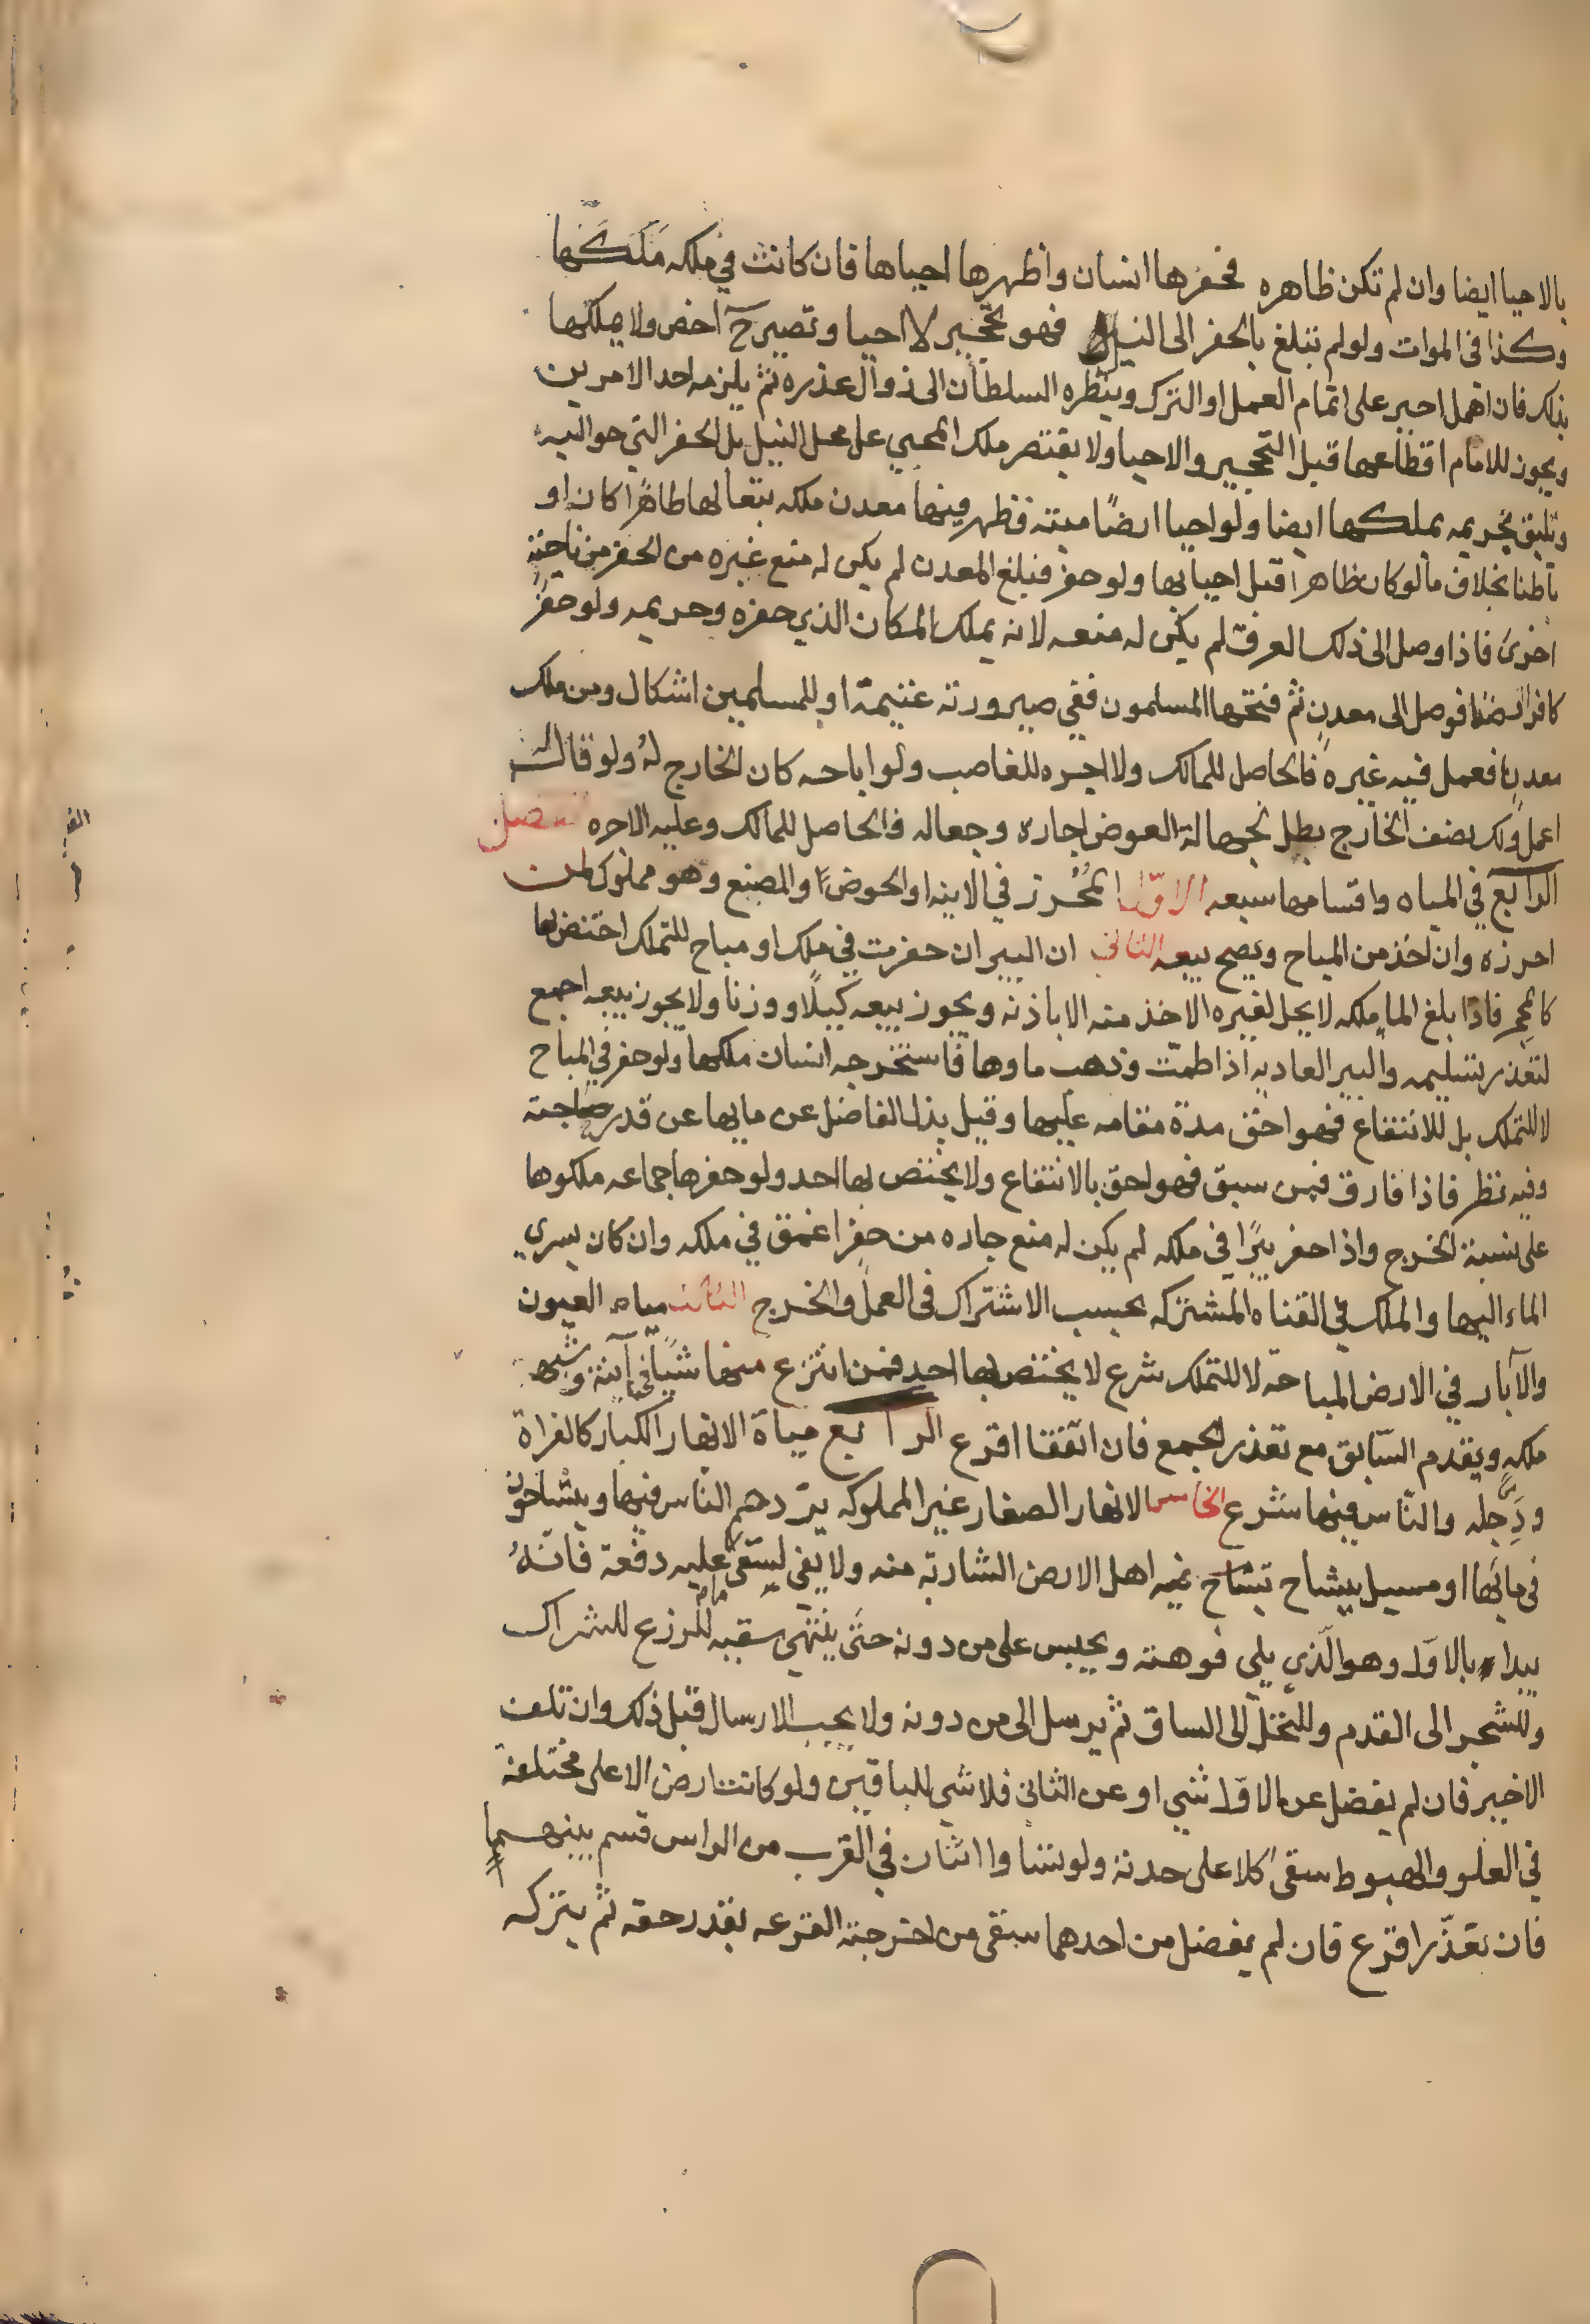 بالاحيا ايضا وان لم تكن ظاهره فحفرها انسان واظهرها احياها فان كانت في ملكه مَلَكَها
وكذا في الموات ولو لم تبلغ بالحفر الى النيل فهو تحجير لا احيا وتصير ح اخص ولا يملكها
بذلك فان اهمل اجبر على اتمام العمل او الترك وينظره السلطان الى زوال عذره ثم يلزمه احد الامرين
ويجوز للامام اقطاعها قبل التحجير والاحيا ولا يقتصر ملك المحيي على محل النيل بل الحفر التي حواليه
وتليق بحريمه يملكها ايضا ولو احيا ارضًا ميتة فظهر فيها معدن ملكه تبعا لها ظاهرًا كان او
باطنا بخلاف ما لو كان ظاهرا قبل احيايها ولو حفر فبلغ المعدن لم يكن له منع غيره من الحفر من ناحية
اخرى فاذا وصل الى ذلك العرق لم يكن له منعه لانه يملك المكان الذي حفره وحريمه ولو حفر
كافر ارضا فوصل الى معدن ثم فتحها المسلمون ففي صيرورته غنيمة او للمسلمين اشكال ومن ملك
معدنا فعمل فيه غيره فالحاصل للمالك ولا اجره للغاصب ولو اباحه كان الخارج لهُ ولو قال له
اعمل ولك نصف الخارج بطل لجهالة العوض اجارة وجعاله فالحاصل للمالك وعليه الاجره الفصل
الرابع في المياه واقسامها سبعه الاوّل المُحْرز في الانيه او الحوض او المصنع وهو مملوك لمن
احرزه وان اخذ من المباح ويصح بيعه الثاني ان البير ان حفرت في ملك او مباح للتملك اختص بها
كالمحجر فاذا بلغ الماء ملكه لا يحل لغيره الاخذ منه الا باذنه ويجوز بيعه كيلًا ووزنا ولا يجوز بيعه اجمع
لتعذر تسليمه والبير العاديه اذا طمّت وذهب ماوها فاستخرجه انسان ملكها ولو حفر في المباح
لا للتملك بل للانتفاع فهو احق مدّة مقامه عليها وقيل بذل الفاضل عن مايها عن قدر حاجته
وفيه نظر فاذا فارق فمن سبق فهو احق بالانتفاع ولا يختص بها احد ولو حفرها جماعه ملكوها
على نسبة الخرج واذا حفر بئرًا في ملكه لم يكن له منع جاره من حفر اعمق في ملكه وان كان يسري
الماء اليها والملك في القناه المشتركه بحسب الاشتراك في العمل والخرج الثالث مياه العيون
والآبار في الارض المباحة لا للتملك شرع لا يختص بها احد فمن انتزع منها شيئًا في آنية وشبهها
ملكه ويقدم السّابق مع تعذر الجمع فان اتفقا اقرع الرابع مياة الانهار الكبار كالفراة
ودِجله والنّاس فيها شرع الخامس الانهار الصغار غير المملوكه يزدحم النّاس فيها ويتشاحون
في مائها او مسيل يتشاح فيه اهل الارض الشاربة منه ولا يفي لسقى ما عليه دفعة فانّهُ
يبداء بالاوّل وهو الّذي يلي فوهته ويحبس على من دونه حتّى ينتهي سقيه للزرع للشراك
وللشجر الى القدم وللنخل الى الساق ثم يرسل الى من دونه ولا يجب الارسال قبل ذلك وان تلف
الاخير فان لم يفضل عن الاوّل شي او عن الثاني فلا شي للباقين ولو كانت ارض الاعلى مختلفة
في العلو والهبوط سقى كلا على حدته ولو تساوا اثنان في القرب من الراس قسم بينهما
فان تعذّر اقرع فان لم يفضل من احدهما سقى من اخرجته القرعه بقدر حقه ثم يتركه